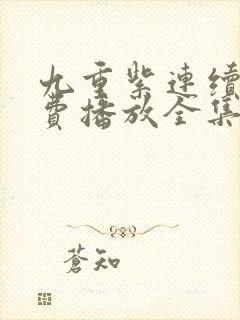 九重紫連續
費播放全集
蒼知